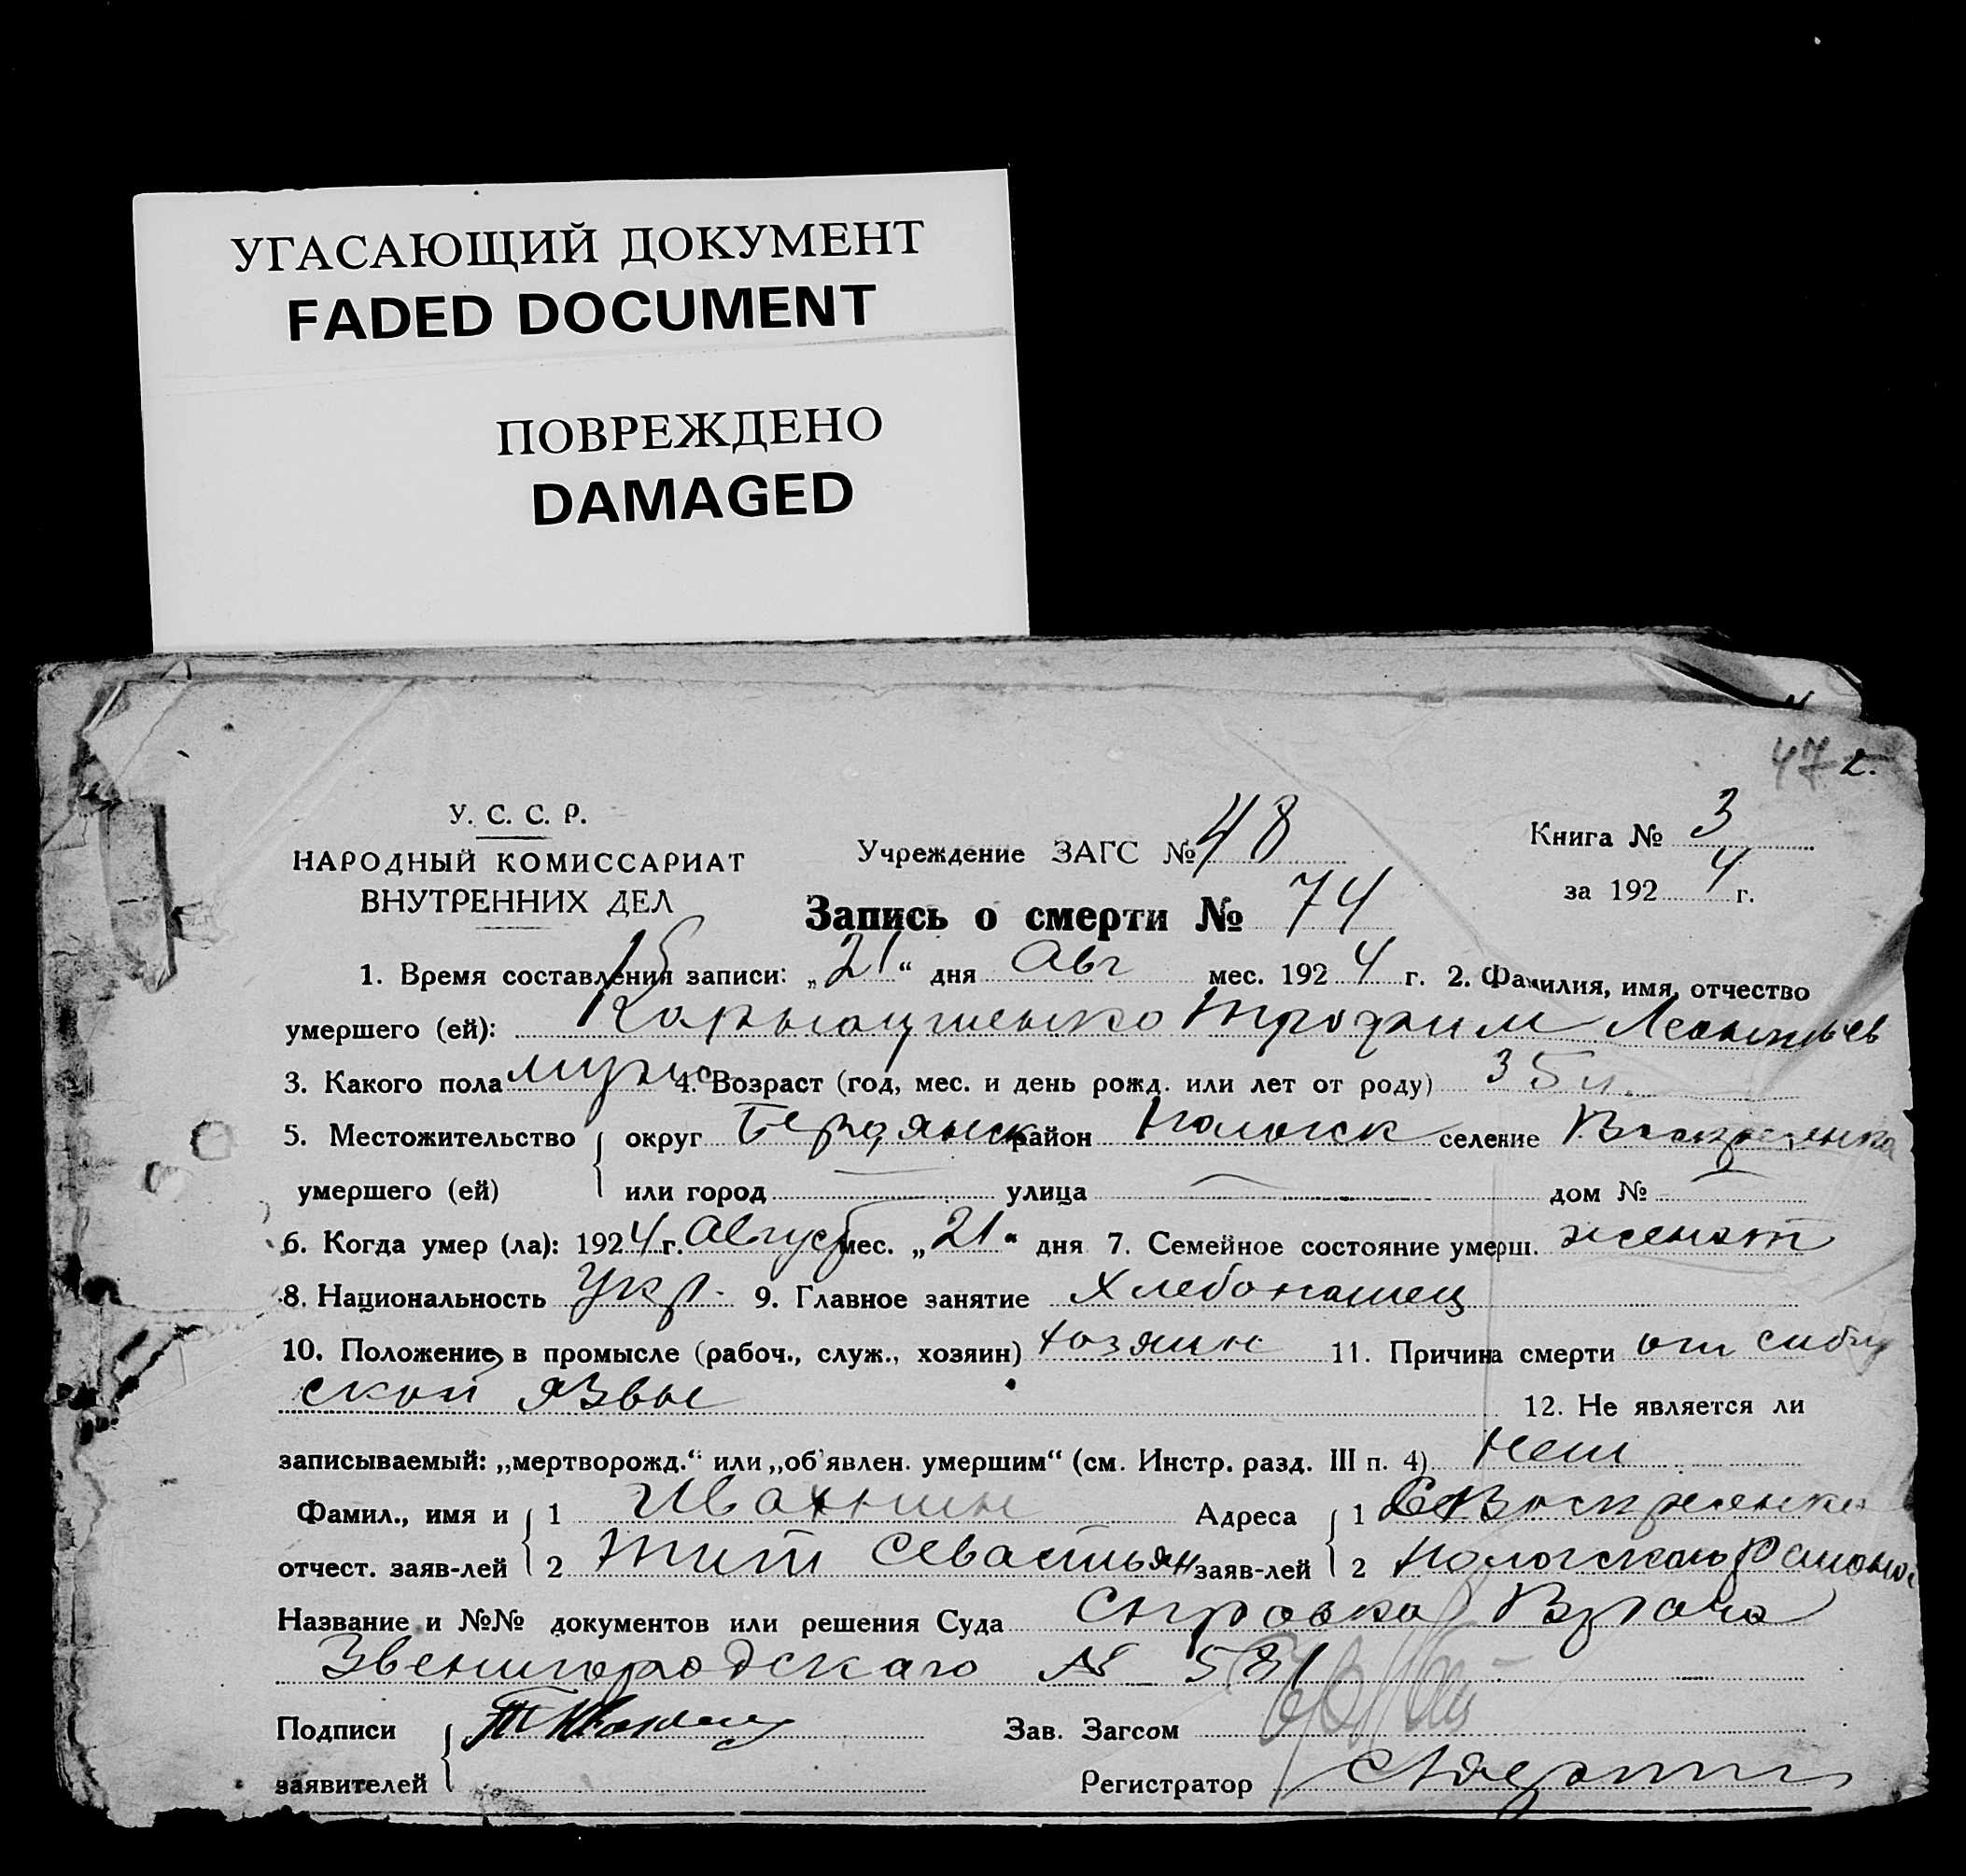 УГАСАЮЩИЙ ДОКУМЕНТ
FADED DOCUMENT
ПОВРЕЖДЕНО
DAMAGED
47
У. С. С. Р.
НАРОДНЫЙ КОМИССАРИАТ
ВНУТРЕННИХ ДЕЛ
Учреждение ЗАГС № 48
Книга № 3
за 1924 г.
Запись о смерти № 74
15
1. Время составления записи: „21“ дня Авг мес. 1924 г. 2. Фамилия, имя, отчество
умершего (ей): Трофим Леонтьев
3. Какого пола мужс 4. Возраст (год, мес. и день рожд. или лет от роду) 35 л.
5. Местожительство округ Бердянск район Пологск селение Воскресенка
умершего (ей) или город — улица — дом № —
6. Когда умер (ла): 1924 г. Август мес. „21“ дня 7. Семейное состояние умерш. женат
8. Национальность Укр. 9. Главное занятие Хлебопашец
10. Положение в промысле (рабоч., служ., хозяин) хозяин 11. Причина смерти от сибир
ской язвы 12. Не является ли
записываемый: „мертворожд.“ или „об'явлен. умершим“ (см. Инстр. разд. III п. 4) Нет
Фамил., имя и 1 Ивахнин Адреса 1 Воскресенка
отчест. заяв-лей 2 Тит Севастьян заяв-лей 2 Пологского Района
Название и №№ документов или решения Суда Справка Врача
Звенигородскаго № 581
Подписи Зав. Загсом
заявителей Регистратор